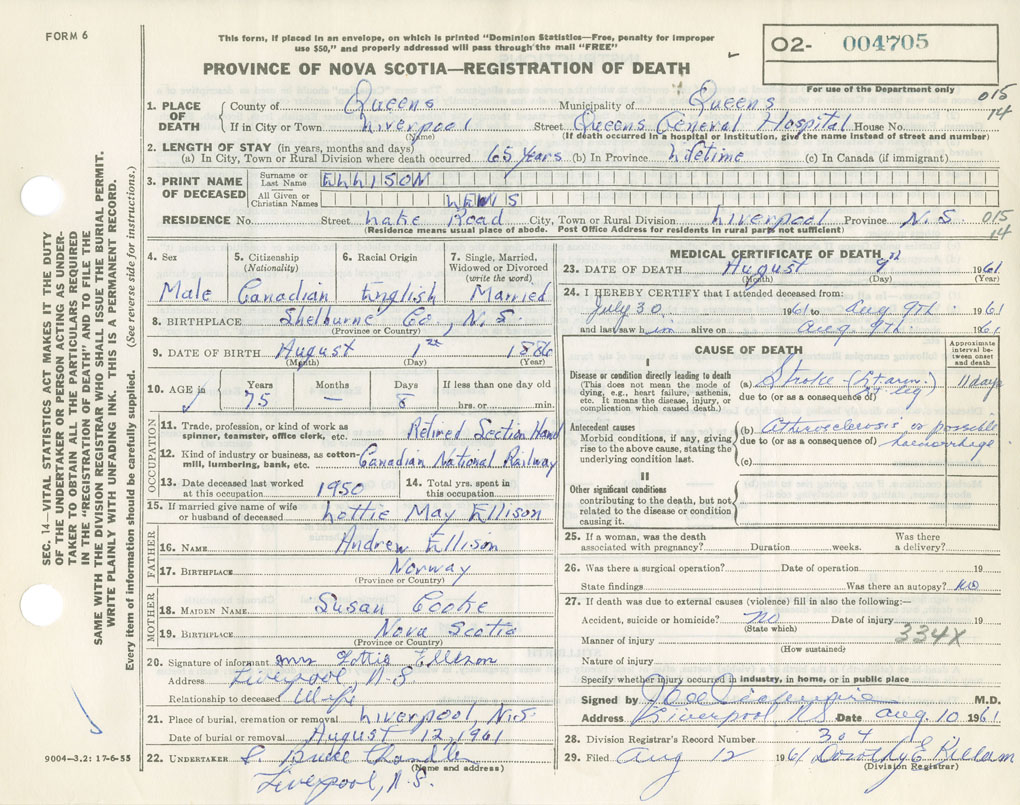 FORM 6
This form, if placed in an envelope, on which is printed "Dominion Statistics—Free, penalty for improper
use $50," and properly addressed will pass through the mail "FREE"
O2- 004705
PROVINCE OF NOVA SCOTIA—REGISTRATION OF DEATH
For use of the Department only
015
14
1. PLACE OF DEATH
County of Queens Municipality of Queens
If in City or Town Liverpool Street Queens General Hospital House No.
(Name) (If death occurred in a hospital or institution, give the name instead of street and number)
2. LENGTH OF STAY (in years, months and days)
(a) In City, Town or Rural Division where death occurred 65 years (b) In Province Lifetime (c) In Canada (if immigrant)
3. PRINT NAME OF DECEASED
Surname or Last Name ELLISON
All Given or Christian Names LEWIS
RESIDENCE No. Street Lake Road City, Town or Rural Division Liverpool Province N.S
015
14
(Residence means usual place of abode. Post Office Address for residents in rural parts not sufficient)
4. Sex Male
5. Citizenship (Nationality) Canadian
6. Racial Origin English
7. Single, Married, Widowed or Divorced (write the word) Married
8. BIRTHPLACE Shelburne Co, N.S.
(Province or Country)
9. DATE OF BIRTH August 1st 1886
(Month) (Day) (Year)
10. AGE in Years 75 Months — Days 8 If less than one day old hrs. or min.
OCCUPATION
11. Trade, profession, or kind of work as spinner, teamster, office clerk, etc. Retired Section Hand
12. Kind of industry or business, as cotton-mill, lumbering, bank, etc. Canadian National Railway
13. Date deceased last worked at this occupation 1950
14. Total yrs. spent in this occupation
15. If married give name of wife or husband of deceased Lottie May Ellison
FATHER
16. NAME Andrew Ellison
17. BIRTHPLACE Norway
(Province or Country)
MOTHER
18. MAIDEN NAME Susan Cooke
19. BIRTHPLACE Nova Scotia
(Province or Country)
20. Signature of informant Mrs Lottie Ellison
Address Liverpool, N.S.
Relationship to deceased Wife
21. Place of burial, cremation or removal Liverpool, N.S.
Date of burial or removal August 12, 1961
22. UNDERTAKER
(Name and address)
Liverpool, N.S.
MEDICAL CERTIFICATE OF DEATH
23. DATE OF DEATH August 9th 1961
(Month) (Day) (Year)
24. I HEREBY CERTIFY that I attended deceased from:
July 30 1961 to Aug 9th 1961
and last saw him alive on Aug 9th 1961
CAUSE OF DEATH
Approximate interval between onset and death
I
Disease or condition directly leading to death
(This does not mean the mode of dying, e.g., heart failure, asthenia, etc. It means the disease, injury, or complication which caused death.)
(a) Stroke (Lt arm: Lt leg) 11 days
due to (or as a consequence of)
Antecedent causes
Morbid conditions, if any, giving rise to the above cause, stating the underlying condition last.
(b) Atherosclerosis or possible
due to (or as a consequence of) haemorrhage
(c)
II
Other significant conditions
contributing to the death, but not related to the disease or condition causing it.
25. If a woman, was the death associated with pregnancy? Duration weeks. Was there a delivery?
26. Was there a surgical operation? Date of operation 19
State findings Was there an autopsy? No
27. If death was due to external causes (violence) fill in also the following:—
Accident, suicide or homicide? No Date of injury 19
(State which)
Manner of injury 334X
(How sustained)
Nature of injury
Specify whether injury occurred in industry, in home, or in public place
Signed by M.D.
Address Liverpool NS Date Aug. 10 1961
28. Division Registrar's Record Number 304
29. Filed Aug 12 1961 Dorothy E Killam
(Division Registrar)
SEC. 14—VITAL STATISTICS ACT MAKES IT THE DUTY
OF THE UNDERTAKER OR PERSON ACTING AS UNDER-
TAKER TO OBTAIN ALL THE PARTICULARS REQUIRED
IN THE "REGISTRATION OF DEATH" AND TO FILE THE
SAME WITH THE DIVISION REGISTRAR WHO SHALL ISSUE THE BURIAL PERMIT.
WRITE PLAINLY WITH UNFADING INK. THIS IS A PERMANENT RECORD.
Every item of information should be carefully supplied. (See reverse side for instructions.)
9004—3.2: 17-6-55